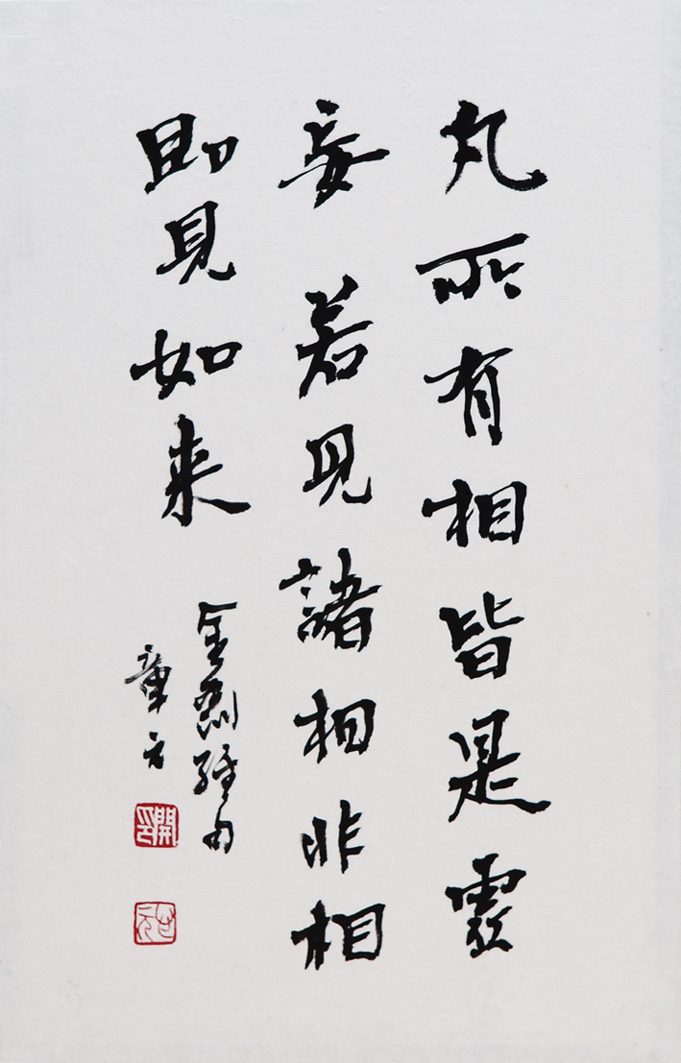 凡所有相皆是虛
妄若見諸相非相
即見如来
金剛經句
章之